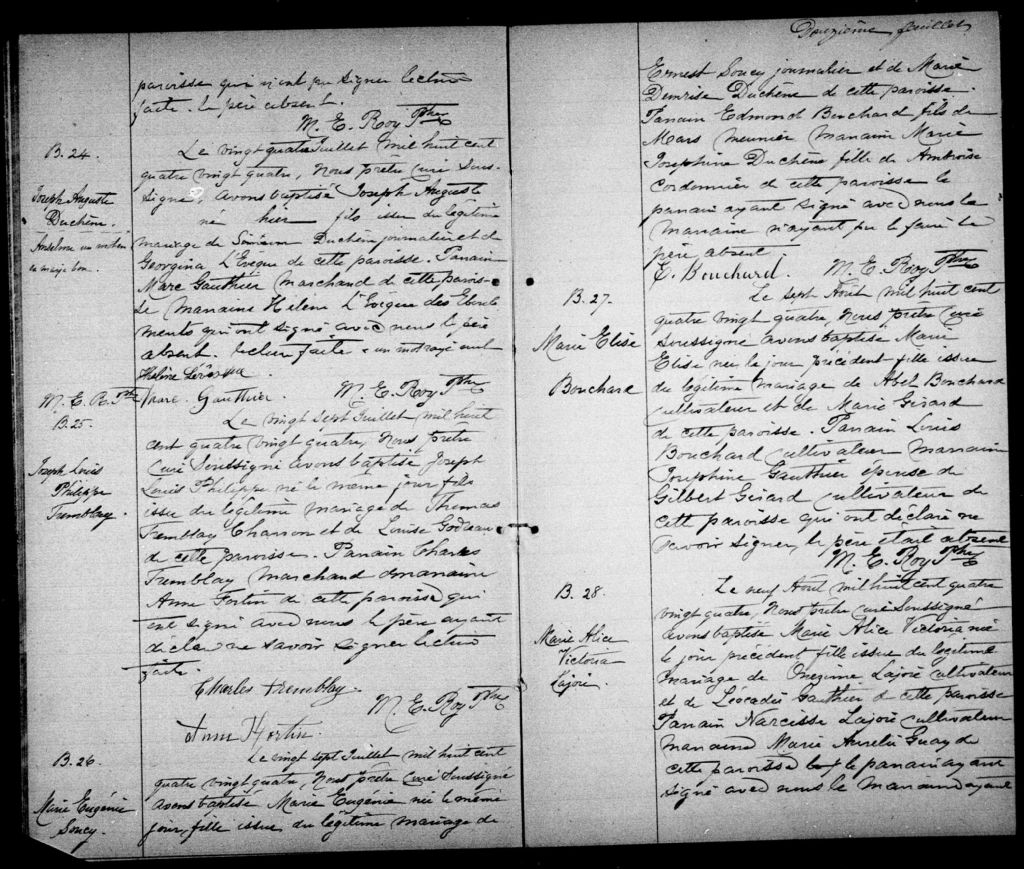 paroisse qui n'ont pu signer lecture
faite. Le père absent.
M. E. Roy Ptre
B. 24.
Joseph Auguste
Duchêne.
en marge bon.
Le vingt quatre Juillet mil huit cent
quatre vingt quatre, Nous prêtre curé sous-
signé, avons baptisé Joseph Auguste
né hier fils issu du légitime
mariage de Siméon Duchêne journalier et de
Georgina L'Evêque de cette paroisse. Parrain
Marc Gauthier marchand de cette parois-
se Marraine Hélène L'Evêque des Eboule
ments qui ont signé avec nous le père
absent. Lecture faite + un mot rayé nul
Hélène Lévesque
M. E. R. Ptre
Marc Gauthier.
M. E. Roy Ptre
B. 25.
Joseph Louis
Philippe
Tremblay.
Le vingt sept Juillet mil huit
cent quatre vingt quatre, Nous prêtre
curé soussigné avons baptisé Joseph
Louis Philippe né le même jour fils
issu du légitime mariage de Thomas
Tremblay Charron et de Louise Godreau
de cette paroisse. Parrain Charles
Tremblay marchand marraine
Anne Fortin de cette paroisse qui
ont signé avec nous le père ayant
déclaré ne savoir signer lecture
faite
Charles Tremblay.
M. E. Roy Ptre
Anne Fortin.
B. 26.
Marie Eugénie
Soucy.
Le vingt sept Juillet mil huit cent
quatre vingt quatre, Nous prêtre curé soussigné
avons baptisé Marie Eugénie née le même
jour, fille issue du légitime mariage de
Douzième feuillet
Ernest Soucy journalier et de Marie
Demrise Duchêne de cette paroisse.
Parrain Edmond Bouchard fils de
Mars meunier marraine Marie
Josephine Duchêne fille de Ambroise
cordonnier de cette paroisse le
parrain ayant signé avec nous la
marraine n'ayant pu le faire le
père absent
E. Bouchard.
M. E. Roy Ptre
B. 27.
Marie Elise
Bouchard
Le sept Août mil huit cent
quatre vingt quatre, Nous prêtre curé
soussigné avons baptisé Marie
Elise née le jour précédent fille issue
du légitime mariage de Abel Bouchard
cultivateur et de Marie Girard
de cette paroisse. Parrain Louis
Bouchard cultivateur marraine
Josephine Gauthier épouse de
Gilbert Girard cultivateur de
cette paroisse qui ont déclaré ne
savoir signer, le père était absent
M. E. Roy Ptre
B. 28.
Marie Alice
Victoria
Lajoie.
Le neuf Août mil huit cent quatre
vingt quatre, Nous prêtre curé soussigné
avons baptisé Marie Alice Victoria née
le jour précédent fille issue du légitime
mariage de Onezime Lajoie cultivateur
et de Léocadie Gauthier de cette paroisse
Parrain Narcisse Lajoie cultivateur
marraine Marie Aurelie Guay de
cette paroisse le parrain ayant
signé avec nous la marraine ayant